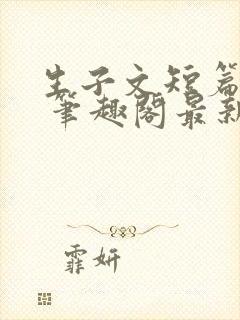 生子文短篇
笔趣阁最新
霏妍